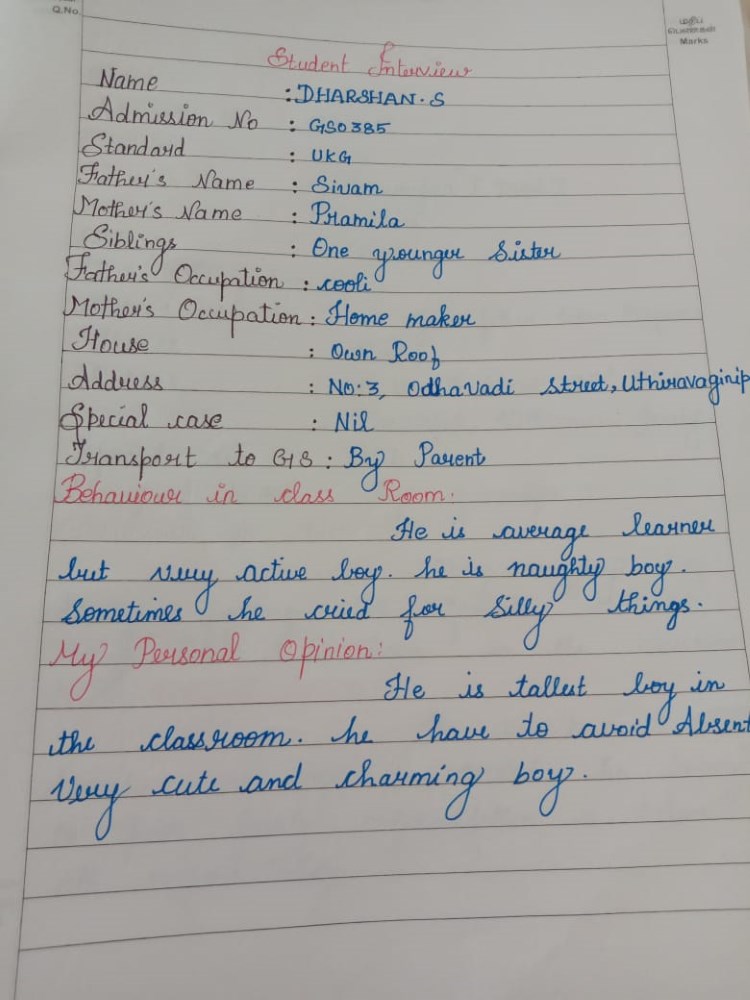 Q.No.
மதிப்
பெண்கள்
Marks
Student Interview
Name : DHARSHAN. S
Admission No : GS0385
Standard : UKG
Father's Name : Sivam
Mother's Name : Pramila
Siblings : One younger Sister
Father's Occupation : cooli
Mother's Occupation : Home maker
House : Own Roof
Address : NO:3, Odhavadi Street, Uthiravaginip
Special case : Nil
Transport to GS : By Parent
Behaviour in class Room.
He is average learner
but very active boy. he is naughty boy.
Sometimes he cried for Silly things.
My Personal Opinion:
He is tallest boy in
the classroom. he have to avoid Absent
Very cute and charming boy.